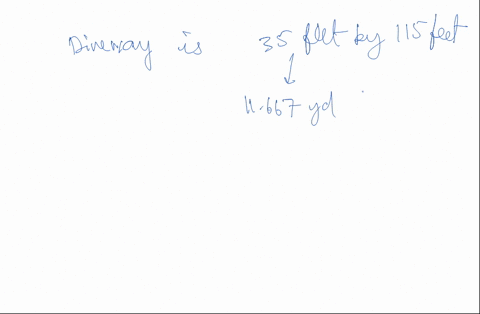 Driveway is 35 feet by 115 feet
↓
11.667 yd